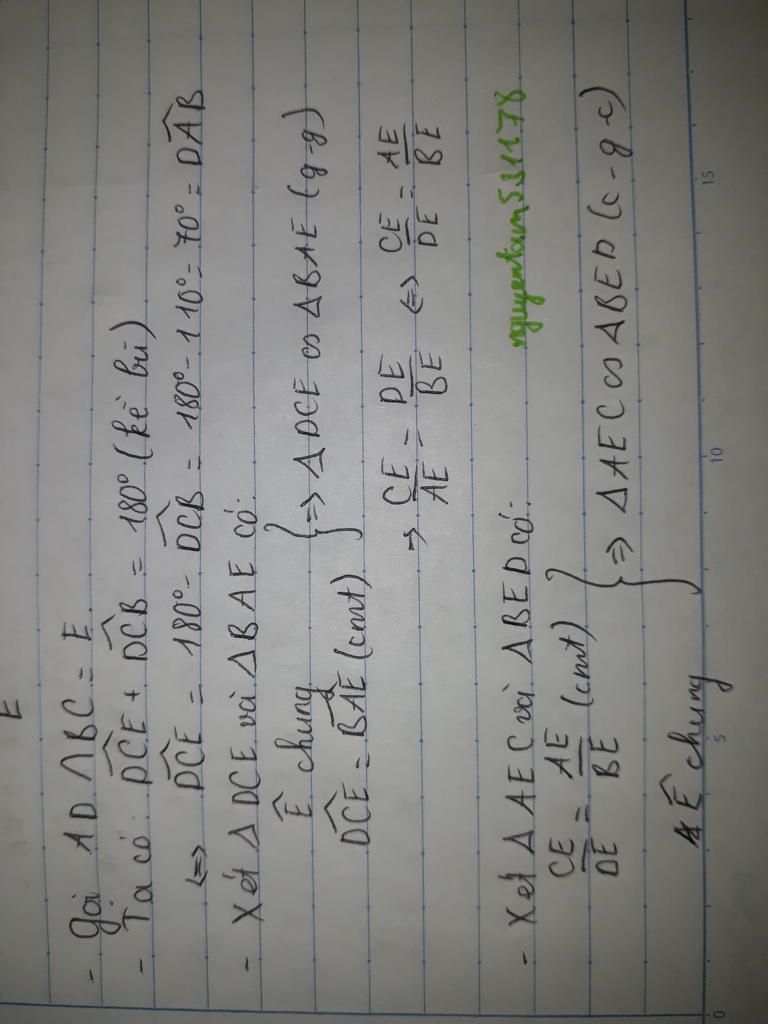 E
- Gọi AD ∩ BC = E.
- Ta có: \widehat{DCE} + \widehat{DCB} = 180° (kề bù)
<=> \widehat{DCE} = 180° - \widehat{DCB} = 180° - 110° = 70° = \widehat{DAB}
- Xét Δ DCE và Δ BAE có:
\widehat{E} chung
\widehat{DCE} = \widehat{BAE} (cmt)
} => Δ DCE ∽ Δ BAE (g-g)
=> \frac{CE}{AE} = \frac{DE}{BE} <=> \frac{CE}{DE} = \frac{AE}{BE}
nguyentam531178
- Xét Δ AEC và Δ BED có:
\frac{CE}{DE} = \frac{AE}{BE} (cmt)
\widehat{E} chung
} => Δ AEC ∽ Δ BED (c-g-c)
0 5 10 15